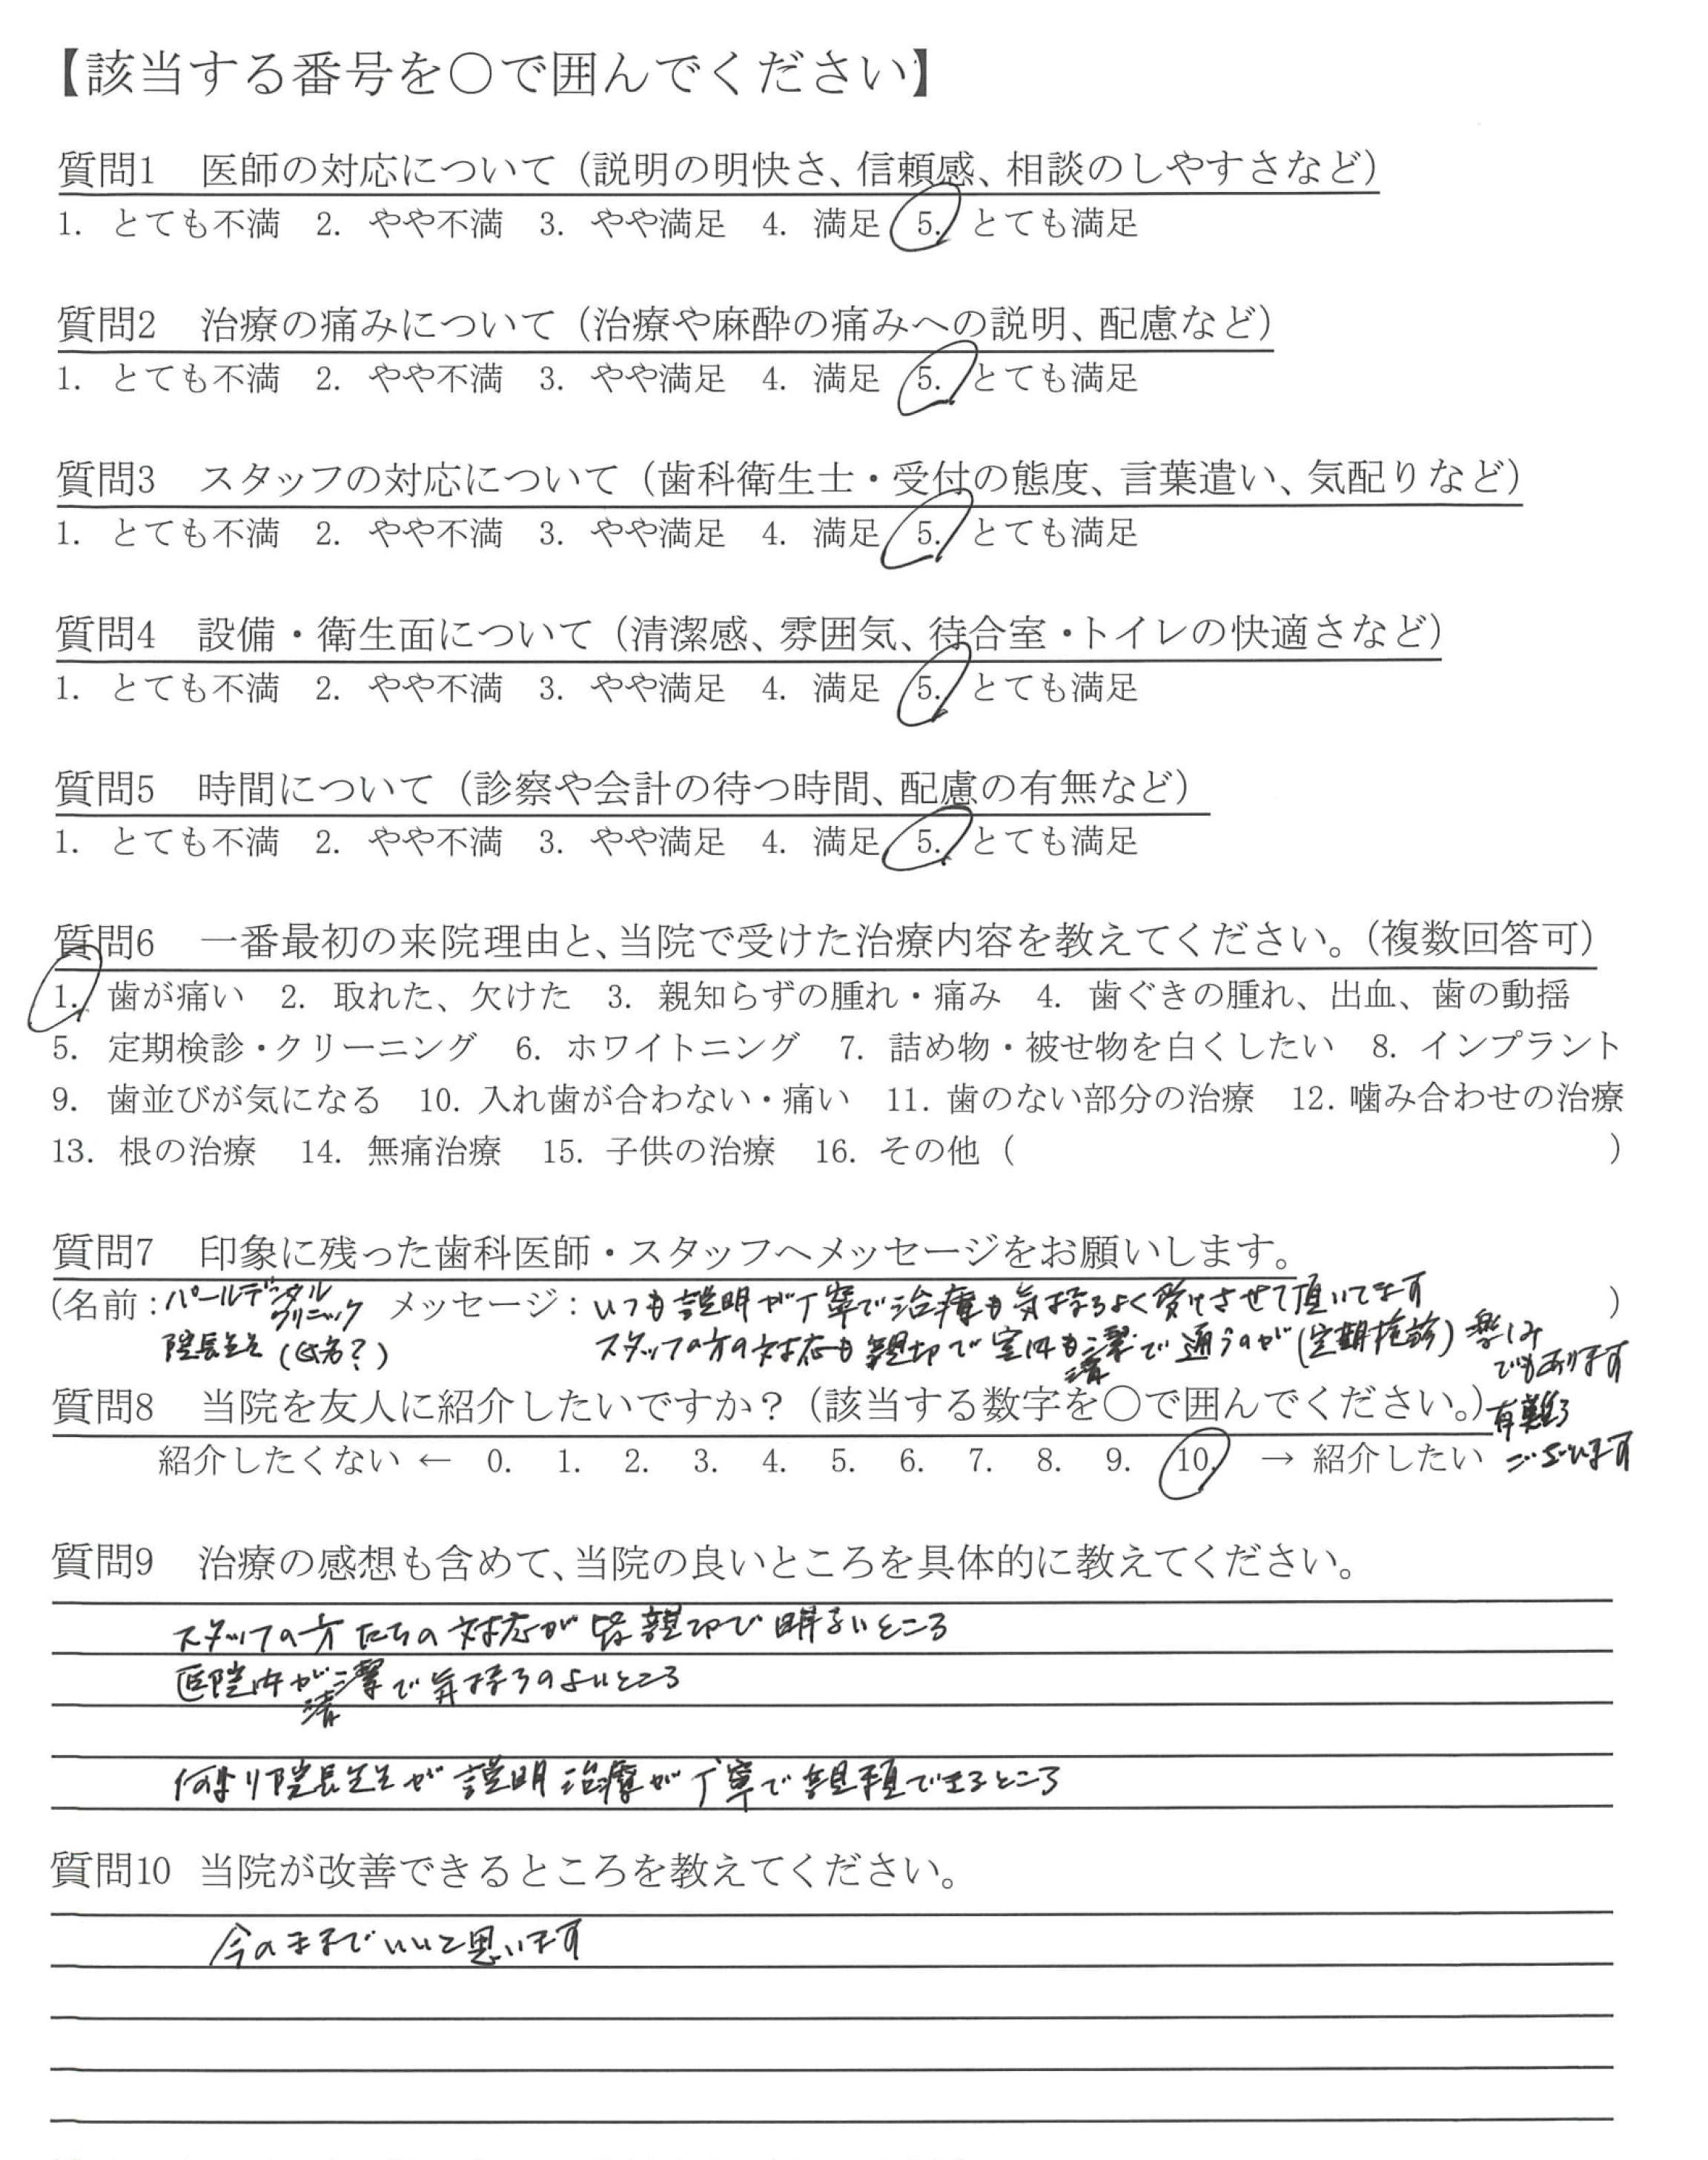 【該当する番号を〇で囲んでください】
質問1　医師の対応について（説明の明快さ、信頼感、相談のしやすさなど）
1. とても不満　2. やや不満　3. やや満足　4. 満足　5. とても満足
質問2　治療の痛みについて（治療や麻酔の痛みへの説明、配慮など）
1. とても不満　2. やや不満　3. やや満足　4. 満足　5. とても満足
質問3　スタッフの対応について（歯科衛生士・受付の態度、言葉遣い、気配りなど）
1. とても不満　2. やや不満　3. やや満足　4. 満足　5. とても満足
質問4　設備・衛生面について（清潔感、雰囲気、待合室・トイレの快適さなど）
1. とても不満　2. やや不満　3. やや満足　4. 満足　5. とても満足
質問5　時間について（診察や会計の待つ時間、配慮の有無など）
1. とても不満　2. やや不満　3. やや満足　4. 満足　5. とても満足
質問6　一番最初の来院理由と、当院で受けた治療内容を教えてください。（複数回答可）
1. 歯が痛い　2. 取れた、欠けた　3. 親知らずの腫れ・痛み　4. 歯ぐきの腫れ、出血、歯の動揺
5. 定期検診・クリーニング　6. ホワイトニング　7. 詰め物・被せ物を白くしたい　8. インプラント
9. 歯並びが気になる　10. 入れ歯が合わない・痛い　11. 歯のない部分の治療　12. 噛み合わせの治療
13. 根の治療　14. 無痛治療　15. 子供の治療　16. その他（　　　）
質問7　印象に残った歯科医師・スタッフへメッセージをお願いします。
（名前：パールデンタルクリニック　メッセージ：いつも説明が丁寧で治療も気持ちよく受けさせて頂いてます）
院長先生（氏名？）　スタッフの方の対応も親切で室内も清潔で通うのが（定期検診）楽しみ
でもあります
質問8　当院を友人に紹介したいですか？（該当する数字を〇で囲んでください。）有難う
紹介したくない ← 0.　1.　2.　3.　4.　5.　6.　7.　8.　9.　10.　→ 紹介したい　ございます
質問9　治療の感想も含めて、当院の良いところを具体的に教えてください。
スタッフの方たちの対応が皆親切で明るいところ
医院内が清潔で気持ちのよいところ
何より院長先生が説明治療が丁寧で信頼できるところ
質問10　当院が改善できるところを教えてください。
今のままでいいと思います